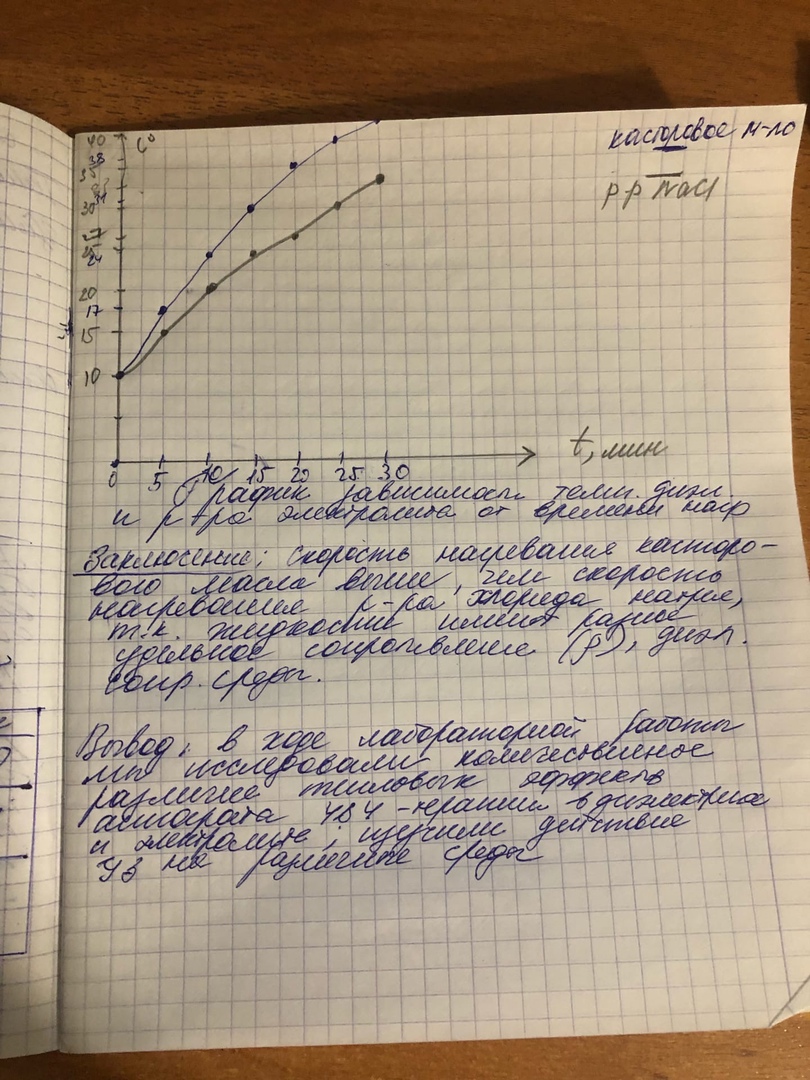 C°
касторовое м-ло
рр NaCl
40
38
35
30
27
25
24
20
17
15
10
t, мин
0 5 10 15 20 25 30
График зависимость темп. диэл.
и р-ра электролита от времени нагр
Заключение: скорость нагревания касторо-
вого масла выше, чем скорость
нагревания р-ра хлорида натрия,
т.к. жидкости имеют разное
удельное сопротивление (ρ), диэл.
сопр. среды.
Вывод: в ходе лабораторной работы
мы исследовали количественное
различие тепловых эффекта
аппарата УВЧ-терапии в диэлектрике
и электролите; изучили действие
УЗ на различные среды